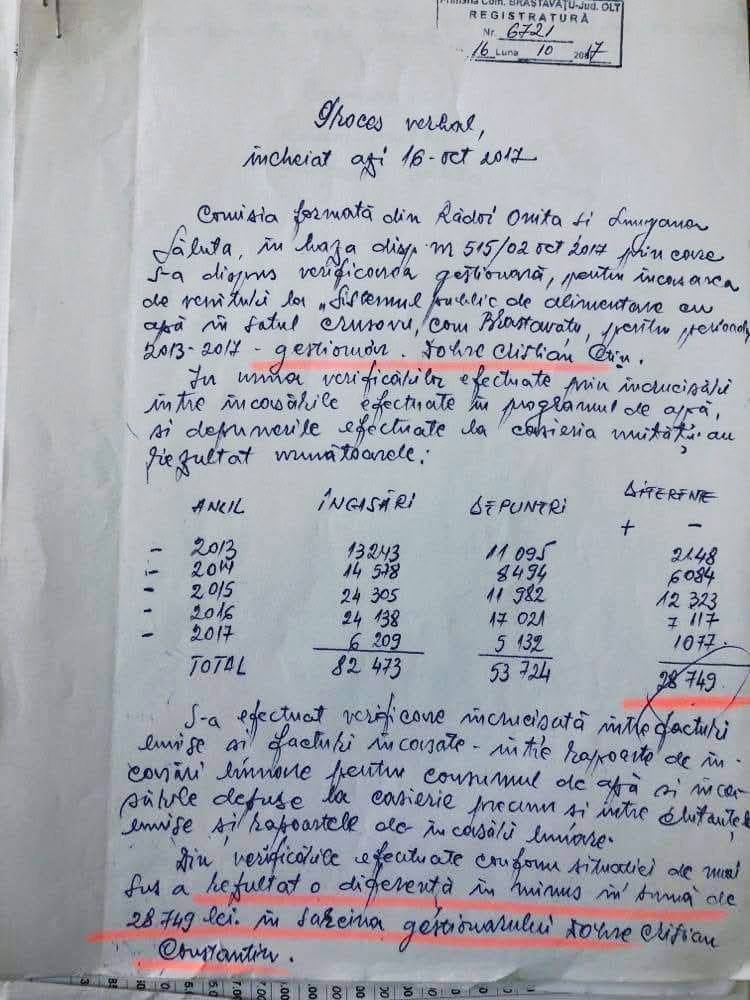 Primăria Com. BRASTAVĂŢU-Jud. OLT
REGISTRATURĂ
Nr. 6721
16 Luna 10 2017
Proces verbal,
încheiat azi 16-oct 2017
Comisia formată din Rădoi Onita si
Săluta, în baza disp. nr 515/02 oct 2017 prin care
s-a dispus verificarea gestionară, pentru incasarea
de venituri la "Sistemul public de alimentare cu
apă în satul Crusovu, com Brastavatu, pentru perioada
2013-2017 - gestionar. Dobre Cristian Ctin.
In urma verificărilor efectuate prin încrucisări
între încasările efectuate în programul de apă,
si depunerile efectuate la casieria unității au
rezultat următoarele:
ANUL ÎNCASĂRI DEPUNERI DIFERENTE
+ -
- 2013 13243 11 095 2148
- 2014 14 578 8494 6084
- 2015 24 305 11 982 12 323
- 2016 24 138 17 021 7 117
- 2017 6 209 5 132 1077
TOTAL 82 473 53 724 28 749
S-a efectuat verificare încrucisată între facturi
emise si facturi încasate - intre rapoarte de în-
casări lunare pentru consumul de apă si înca-
sările depuse la casierie precum si intre chitanțele
emise si rapoartele de încasări lunare.
Din verificările efectuate conform situatiei de mai
sus a rezultat o diferență în minus în sumă de
28.749 lei în sarcina gestionarului Dobre Cristian
Constantin.